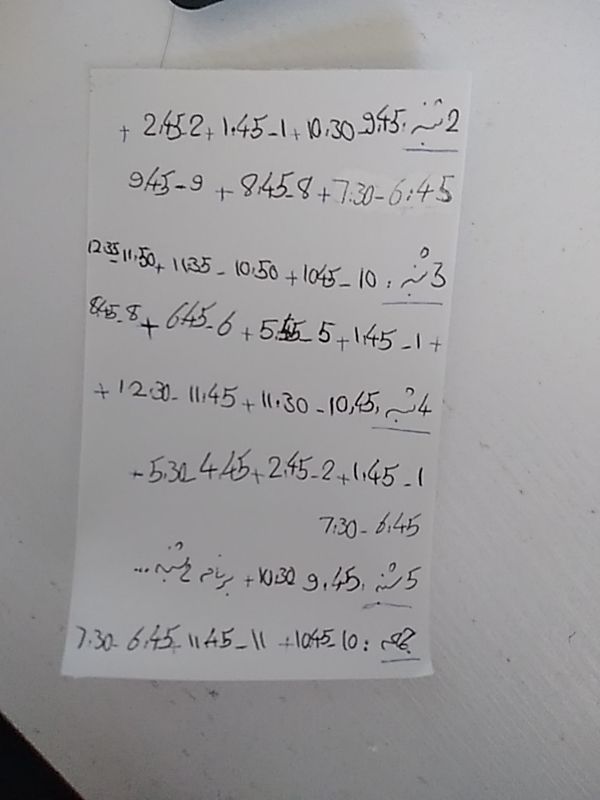 2شنبه: 9.45-10.30 + 1-1.45 + 2-2.45 +
6:45-7:30 + 8-8.45 + 9-9.45
3شنبه: 10-10.45 + 10.50-11.35 + 11.50-12.35
+ 1-1.45 + 5-5.45 + 6-6.45 + 8-8.45
4شنبه: 10.45-11.30 + 11.45-12.30 +
1-1.45 + 2-2.45 + 4.45-5.30 -
6.45-7.30
5شنبه: 9.45 10.30 + برنامه ...
جمعه: 10-10.45 + 11-11.45 - 6.45-7.30